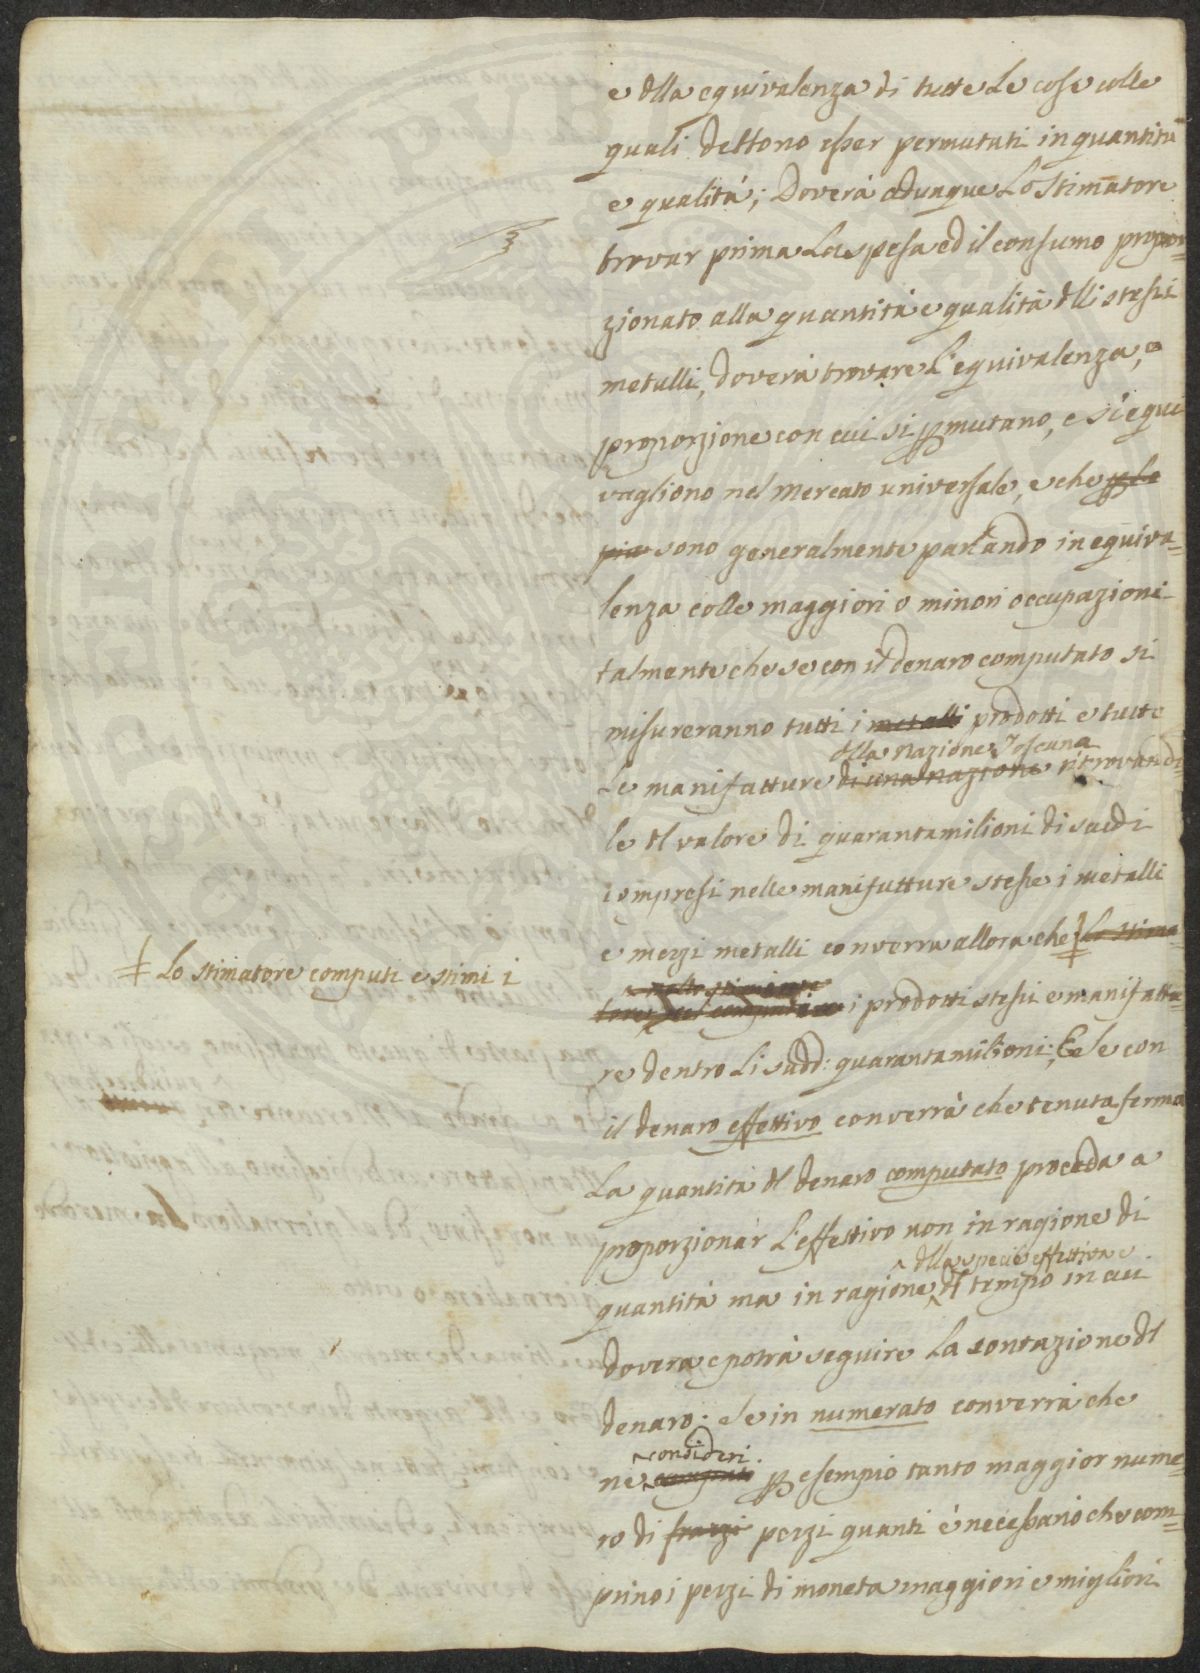 e dlla equivalenza di tutte le cose colle
quali debbono esser permutati in quantità
e qualità; Doverà adunque Lo Stimatore
trovar prima La spesa ed il consumo propor-
zionato alla quantità e qualità dlli stessi
metalli, doverà trovare L'equivalenza, o
proporzione con cui si p̱mutano, e s'equi
vagliono nel mercato universale, e che p̱ lo
più sono generalmente parlando in equiva=
lenza colle maggiori o minori occupazioni
talmente che se con il denaro computato si
misureranno tutti i metalli prodotti e tutte
dlla Nazione Toscana
Le manifatture di una Nazione ritrovando
le dl valore di quarantamilioni di scudi
compresi nelle manifatture stesse i metalli
e mezzi metalli converrà allora che Lo Stima
‡ Lo stimatore computi e stimi i
i prodotti stessi e manifattu=
re dentro Li sudd: quarantamilioni; E se con
il denaro effettivo converrà che tenuta ferma
La quantità dl denaro computato proceda a
proporzionar L'effettivo non in ragione di
dlla specie effettiva e
quantità ma in ragione dl tempo in cui
dovera e potrà seguire La contazione dl
denaro: e se in numerato converrà che
consideri
ne computi p̱ esempio tanto maggior nume=
ro di pezzi quanti è necessario che com=
prino i pezzi di moneta maggiori e migliori